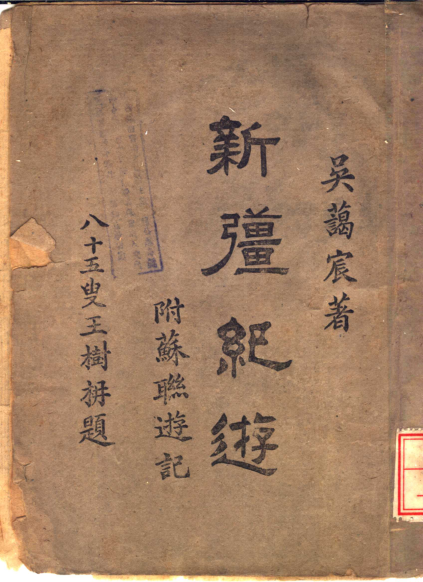 吳藹宸著
新彊紀遊
附蘇聯遊記
八十五叟王樹枏題